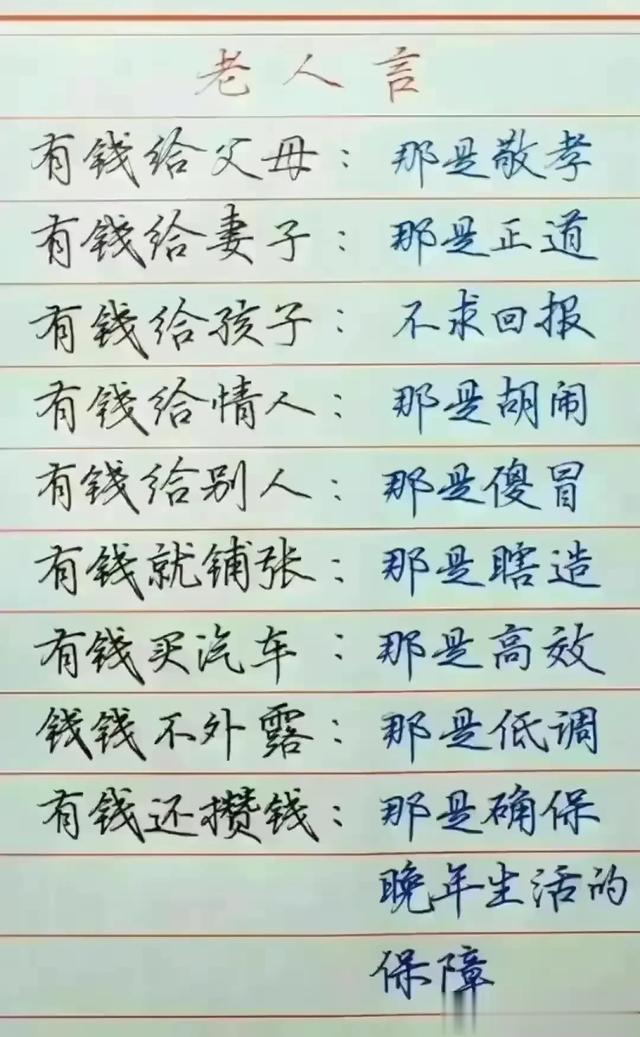 老人言
有钱给父母：那是敬孝
有钱给妻子：那是正道
有钱给孩子：不求回报
有钱给情人：那是胡闹
有钱给别人：那是傻冒
有钱就铺张：那是瞎造
有钱买汽车：那是高效
钱钱不外露：那是低调
有钱还攒钱：那是确保
晚年生活的
保障